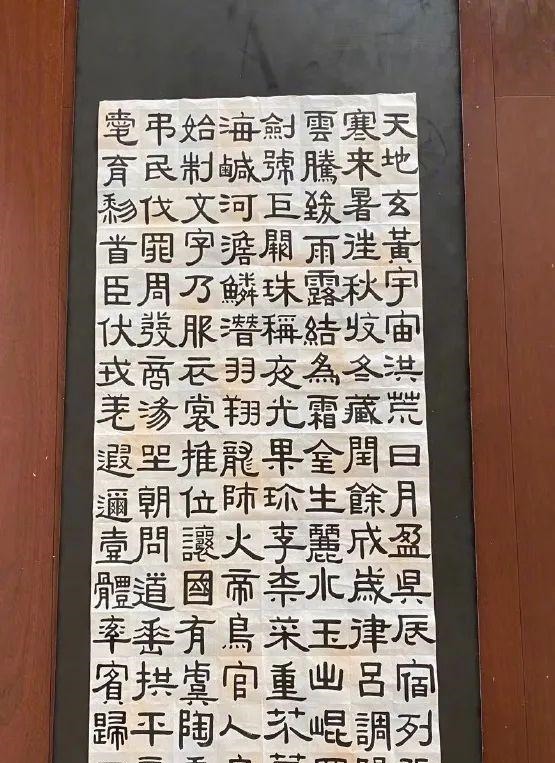 天地玄黃宇宙洪荒日月盈昃辰宿列
寒来暑往秋收冬藏閏餘成歲律呂調
雲騰致雨露結為霜金生麗水玉出崐
劍號巨闕珠稱夜光果珍李柰菜重芥
海鹹河澹鱗潛羽翔龍師火帝鳥官人
始制文字乃服衣裳推位讓國有虞陶
弔民伐罪周發商湯坐朝問道垂拱平
愛育黎首臣伏戎羌遐邇壹體率賓歸